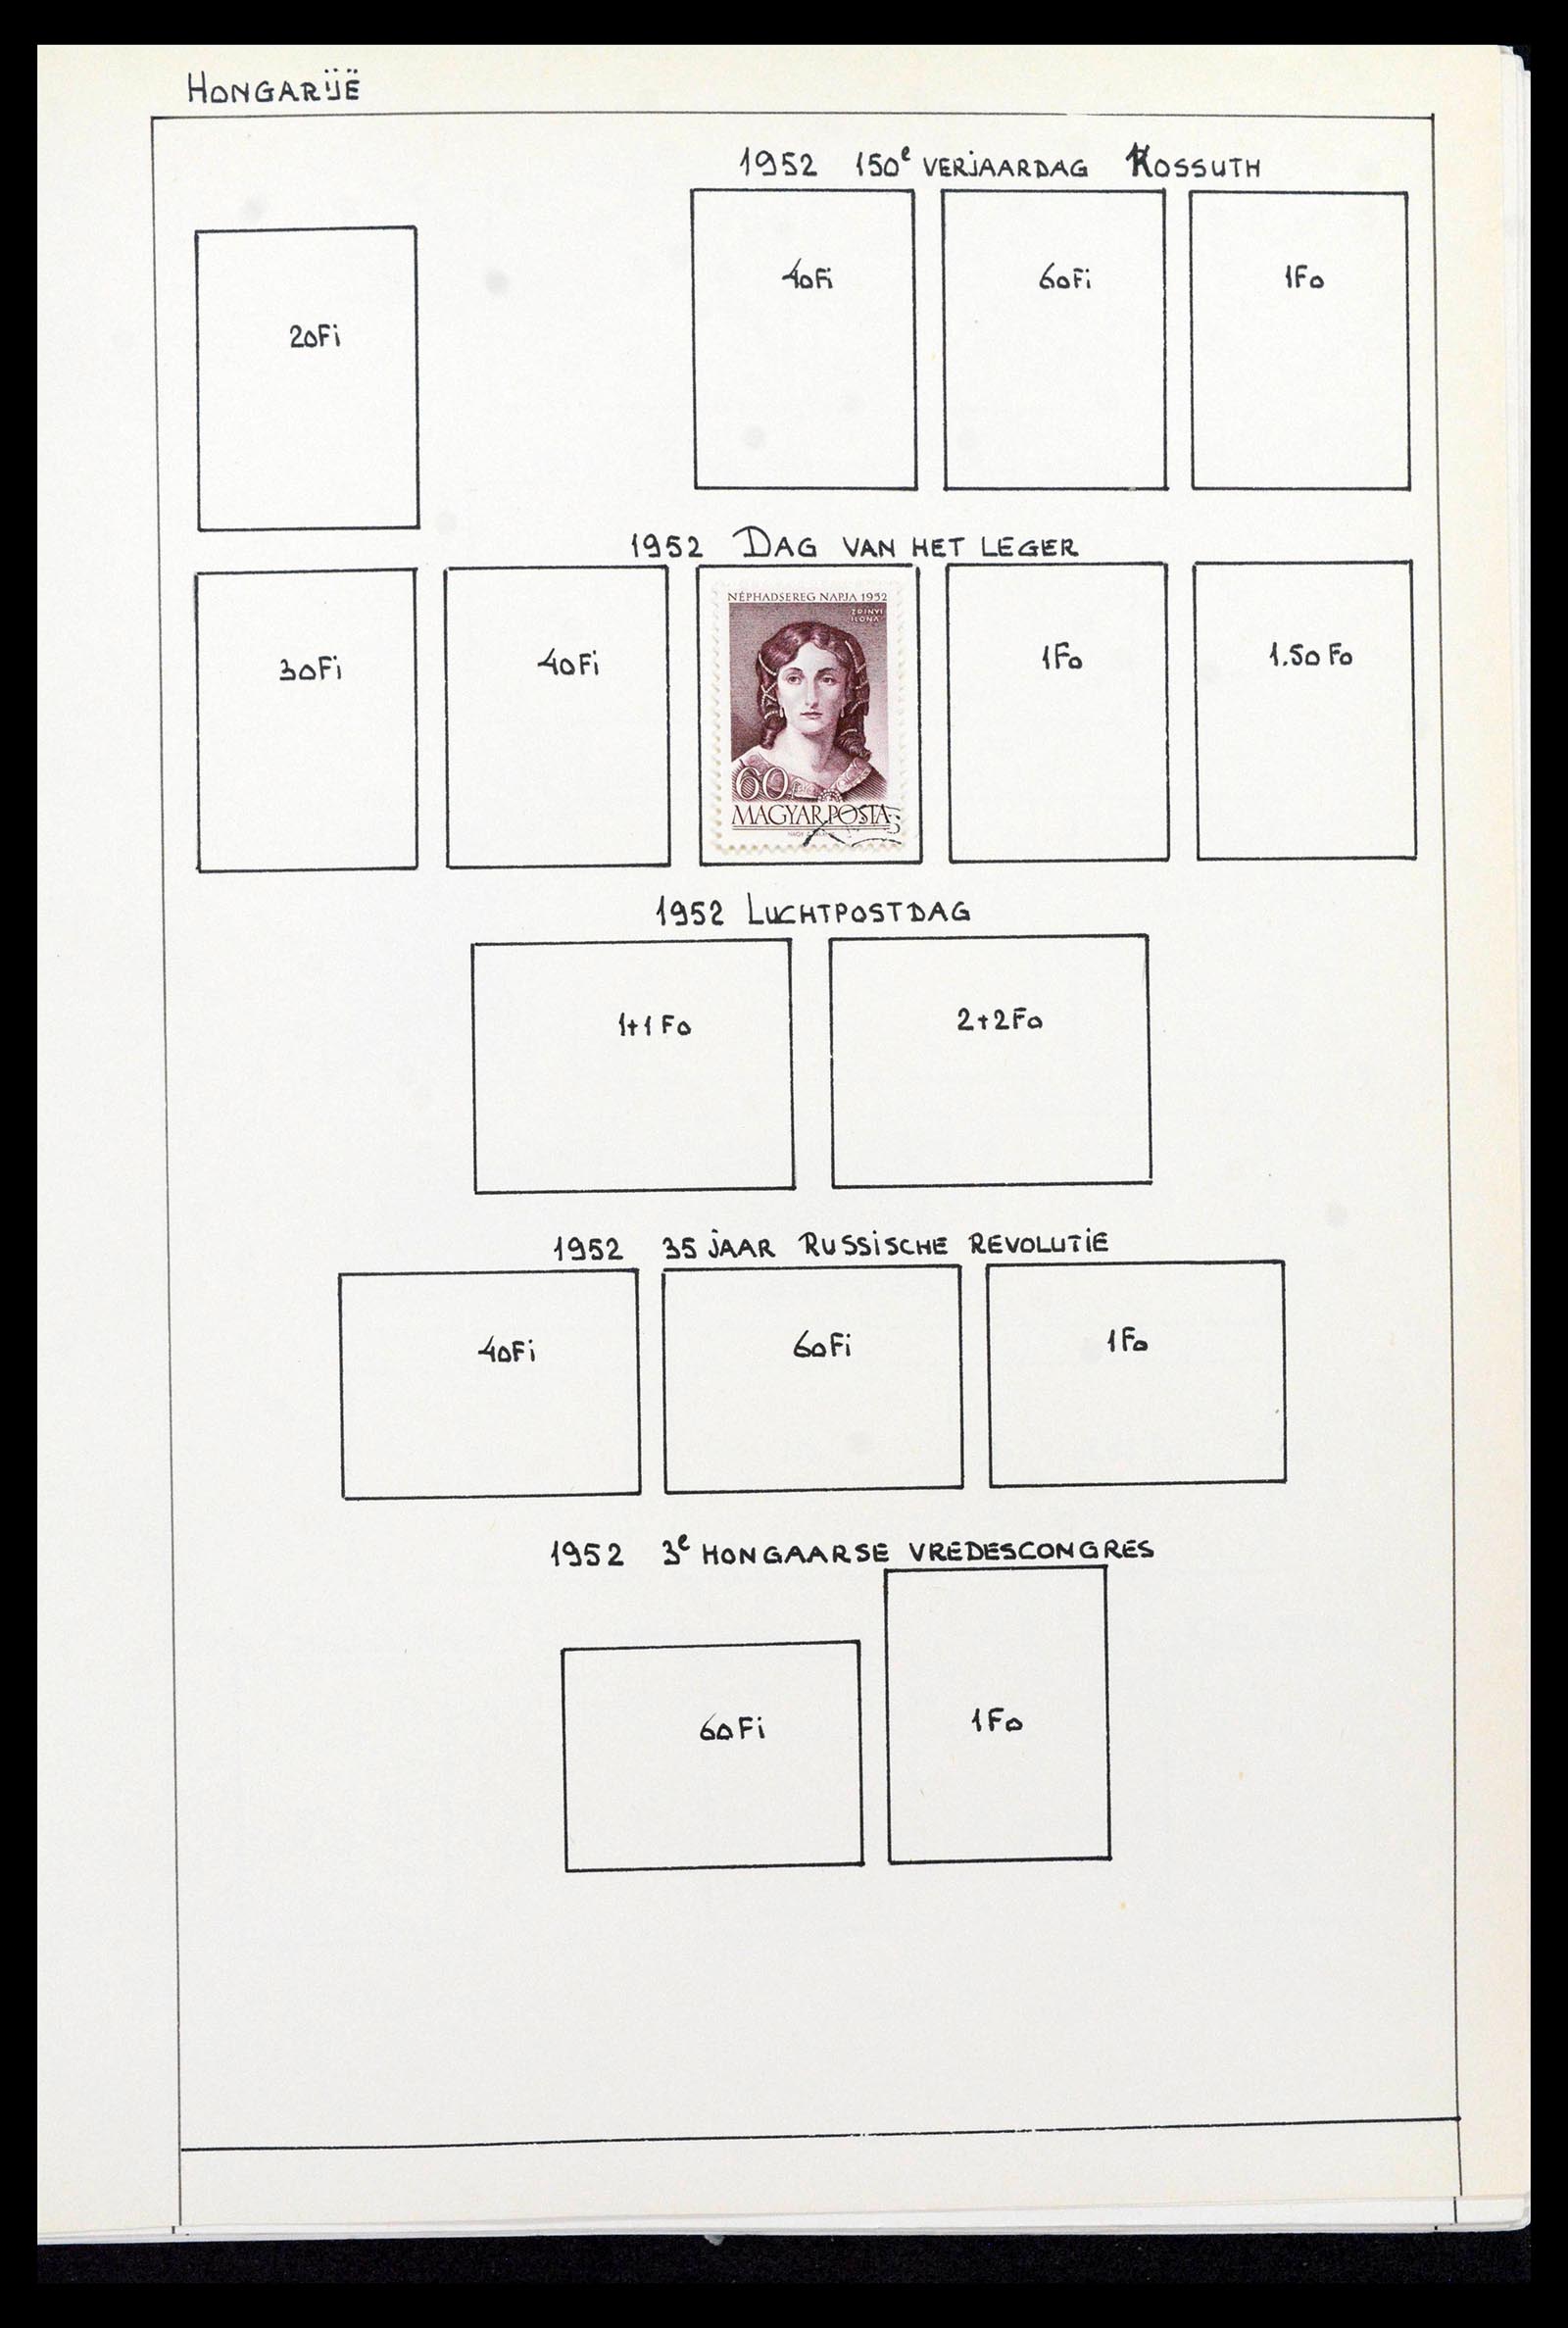 HONGARIJË
1952 150e VERJAARDAG KOSSUTH
20Fi
40Fi
60Fi
1Fo
1952 DAG VAN HET LEGER
30Fi
40Fi
NÉPHADSEREG NAPJA 1952
ZRINYI
ILONA
60f
MAGYAR POSTA
1Fo
1.50 Fo
1952 LUCHTPOSTDAG
1+1 Fo
2+2Fo
1952 35 JAAR RUSSISCHE REVOLUTIE
40Fi
60Fi
1Fo
1952 3e HONGAARSE VREDESCONGRES
60Fi
1Fo